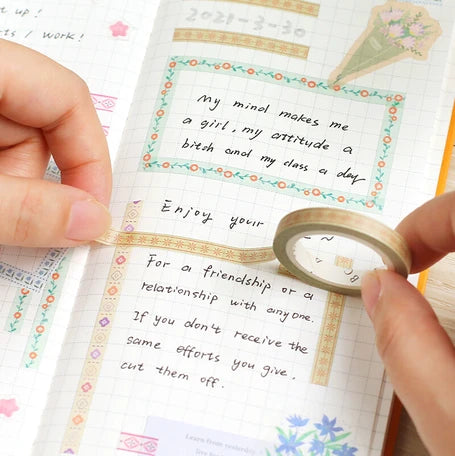 t up!
ts / work!
2021-3-30
My mind makes me
a girl, my attitude a
bitch and my class a day
Enjoy your
For a friendship or a
relationship with anyone.
If you don't receive the
same efforts you give,
cut them off.
Learn from yesterday